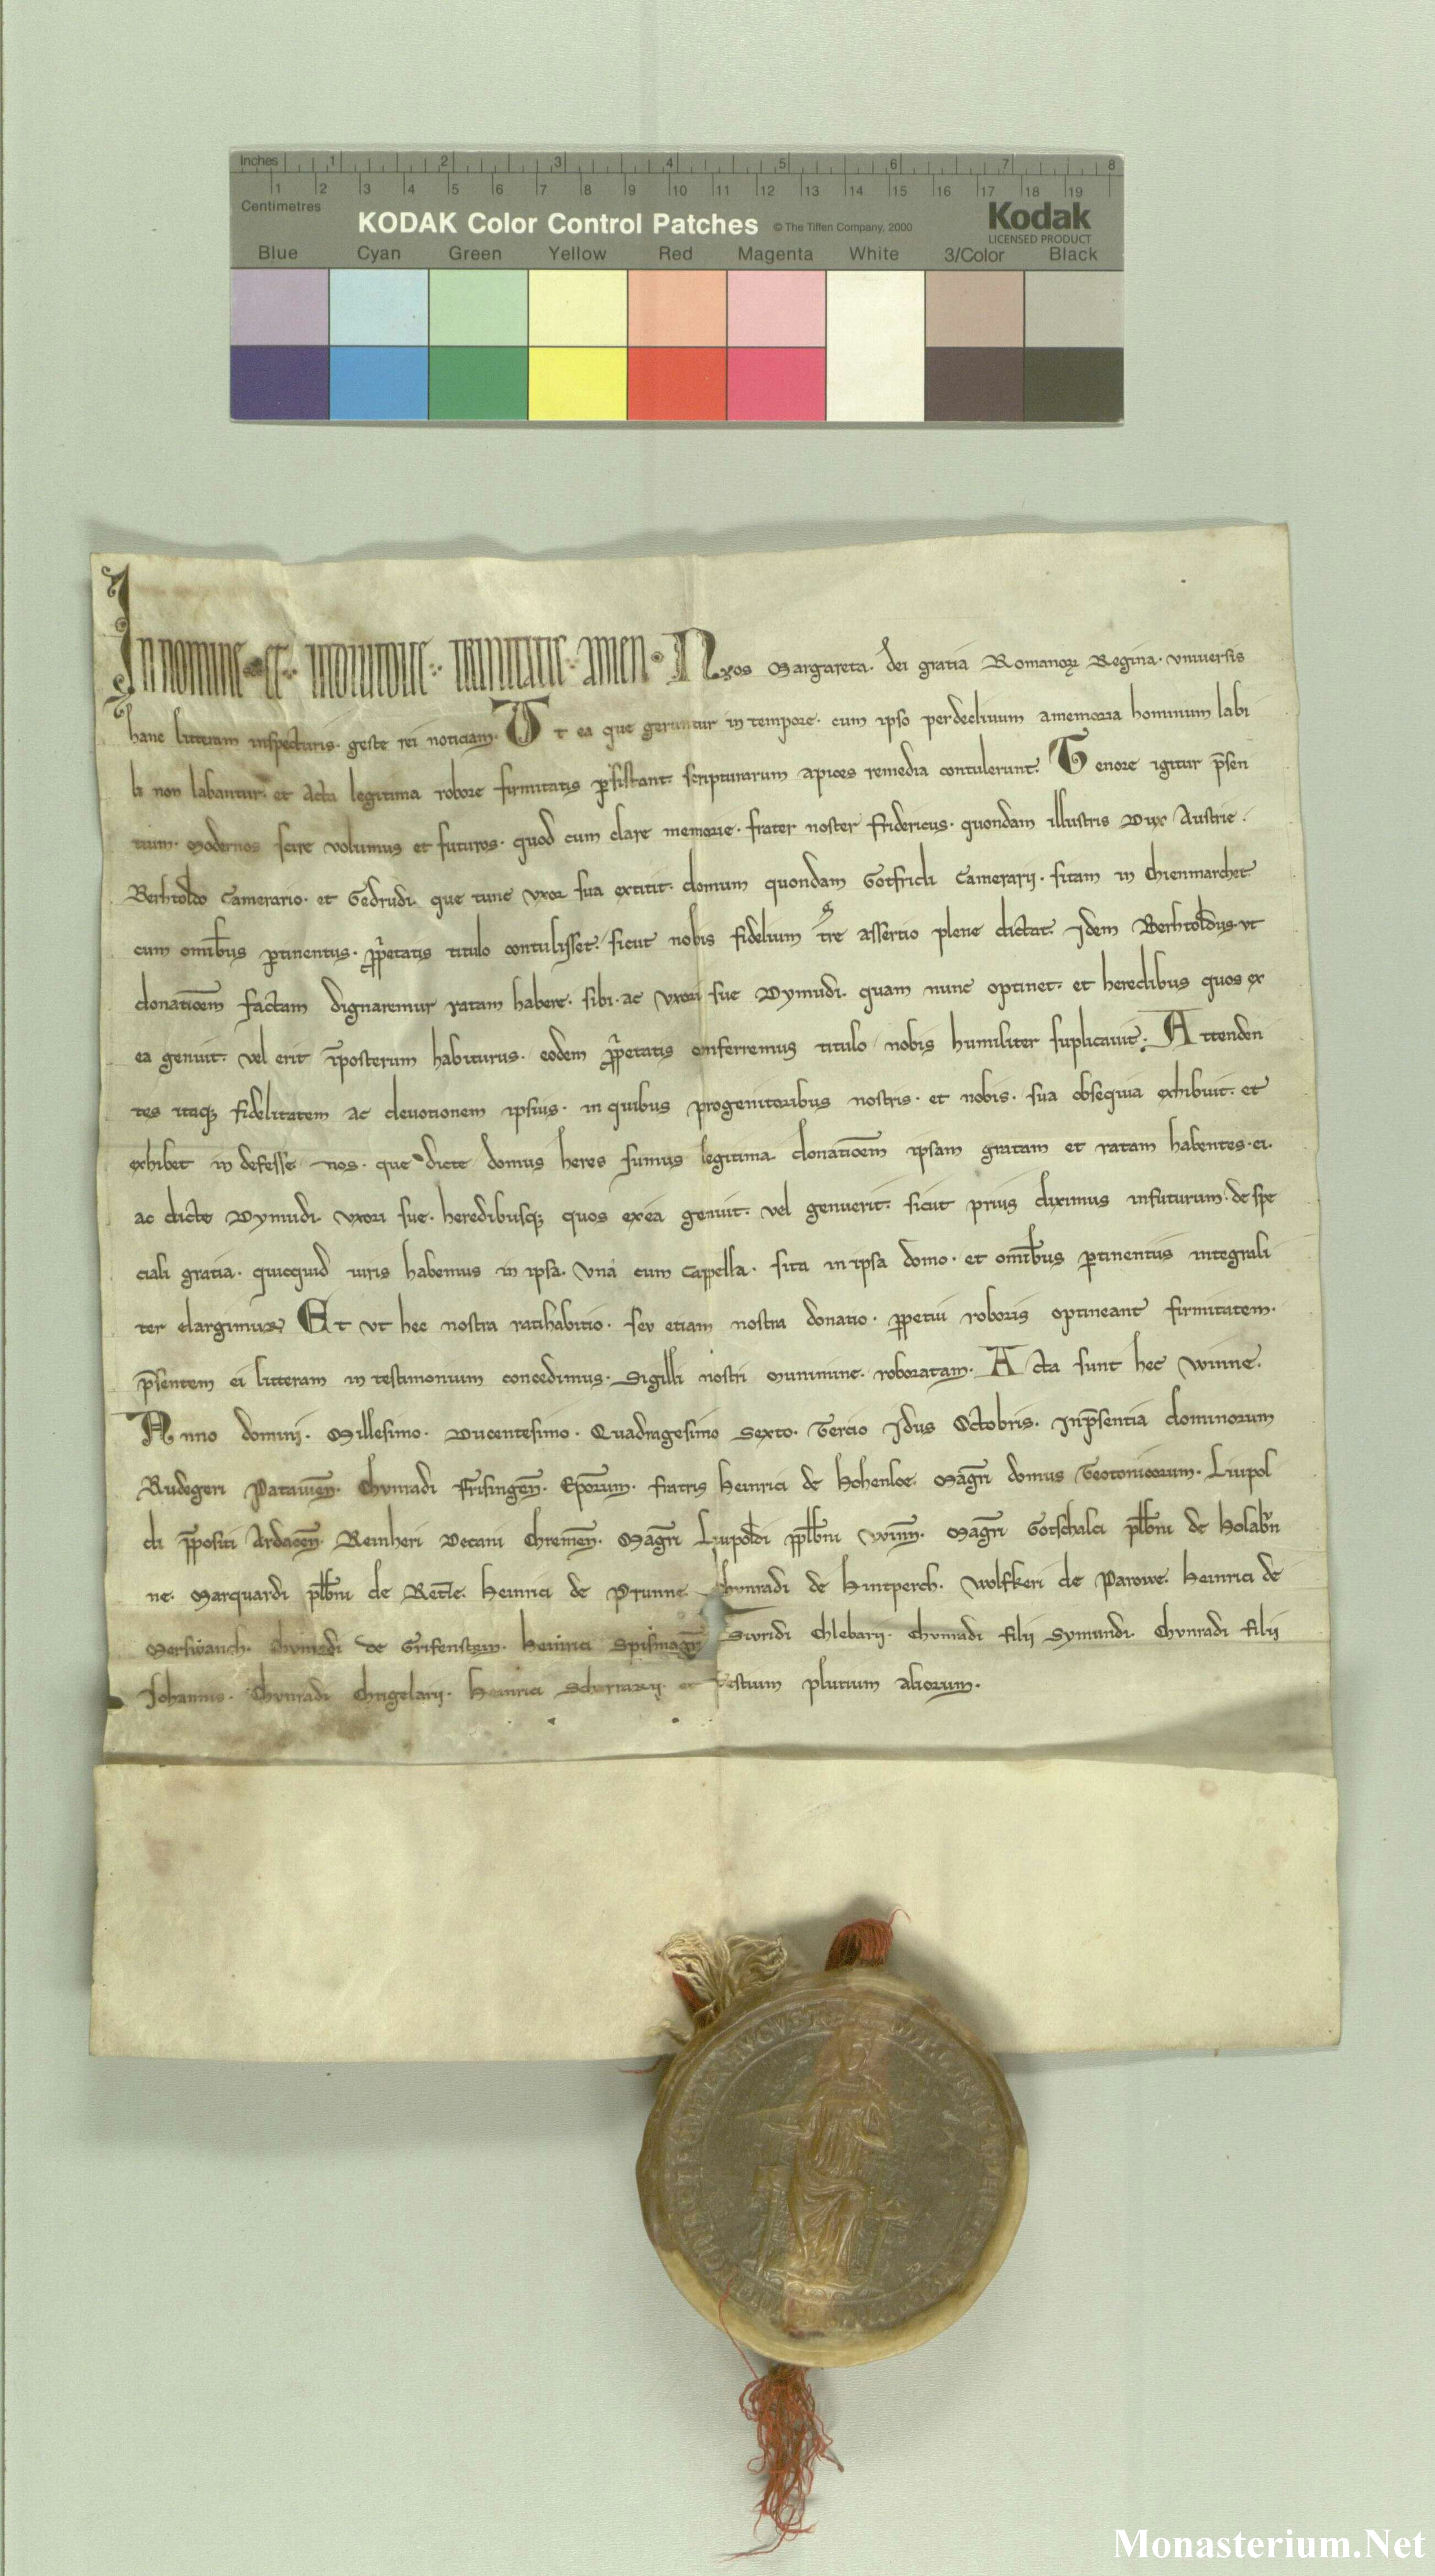 Inches 1 2 3 4 5 6 7 8
1 2 3 4 5 6 7 8 9 10 11 12 13 14 15 16 17 18 19
Centimetres
KODAK Color Control Patches © The Tiffen Company, 2000 Kodak
LICENSED PRODUCT
Blue Cyan Green Yellow Red Magenta White 3/Color Black
In nomine et individue trinitatis amen. Nos Margareta. dei gratia Romanoꝝ Regina. vniuersis
hanc litteram inspecturis. geste rei noticiam. Ut ea que geruntur in tempore. cum ipso per decliuum a memoria hominum labi
li non labantur. et acta legitima robore firmitatis ꝑsistant. scripturarum apices remedia contulerunt. Tenore igitur p̄sen
tium. modernos scire volumus et futuros. quod cum clare memorie. frater noster Fridericus. quondam illustris Dux Austrie.
Berhtoldo Camerario. et Gedrudi. que tunc vxor sua extitit. domum quondam Gotfridi Camerarij. sitam in Chienmarchet
cum om̄ibus ꝑtinentiis. ꝓp̄etatis titulo contulisset. sicut nobis fidelium assertio plene dictat. Idem Berhtoldus. vt
donatiōem factam dignaremur ratam habere. sibi. ac vxori sue Dymudi. quam nunc optinet. et heredibus quos ex
ea genuit. vel erit īposterum habiturus. eodem ꝓp̄etatis conferremus titulo nobis humiliter suplicauit. Attenden
tes itaqꝫ fidelitatem ac deuotionem ipsius. in quibus progenitoribus nostris. et nobis. sua obsequia exhibuit. et
exhibet in defesse nos. que dicte domus heres sumus legitima donatiōem ipsam gratam et ratam habentes. ei.
ac dicte Dymudi. vxori sue. heredibusqꝫ quos ex ea genuit. vel genuerit. sicut prius diximus in futurum. de spe
ciali gratia. quicquid iuris habemus in ipsa. vna cum Cappella. sita in ipsa domo. et om̄ibus ꝑtinentiis integrali
ter elargimur. Et vt hec nostra ratihabitio. seu etiam nostra donatio. ꝑpetui roboris optineant firmitatem.
p̄sentem ei litteram in testimonium concedimus. Sigilli nostri munimine. roboratam. Acta sunt hec Winne.
Anno domini. Millesimo. Ducentesimo. Quadragesimo Sexto. Tercio Idus Octobris. In p̄sentia dominorum
Rudegeri Patauien̄. Chunradi Frisingen̄. Ep̄orum. fratris Heinrici de Hohenloe. Magr̄i domus Teotonicorum. Liupol
di p̄positi Ardacen̄. Reinheri Decani Chremen̄. Magr̄i Liupoldi pl̄bni Winn̄. Magr̄i Gotschalci pl̄bni de Holabrn̄
ne. Marquardi pl̄bni de Retze. Heinrici de Prunne. Chunradi de Hintperch. Wolfkeri de Parowe. Heinrici de
Chunradi de Grifenstein. Heinrici Siuridi Chlebarij. Chunradi filij Symundi. Chunradi filij
Iohannis. Chunradi Chngelarij. Heinrici et testium plurium aliorum.
Monasterium.Net